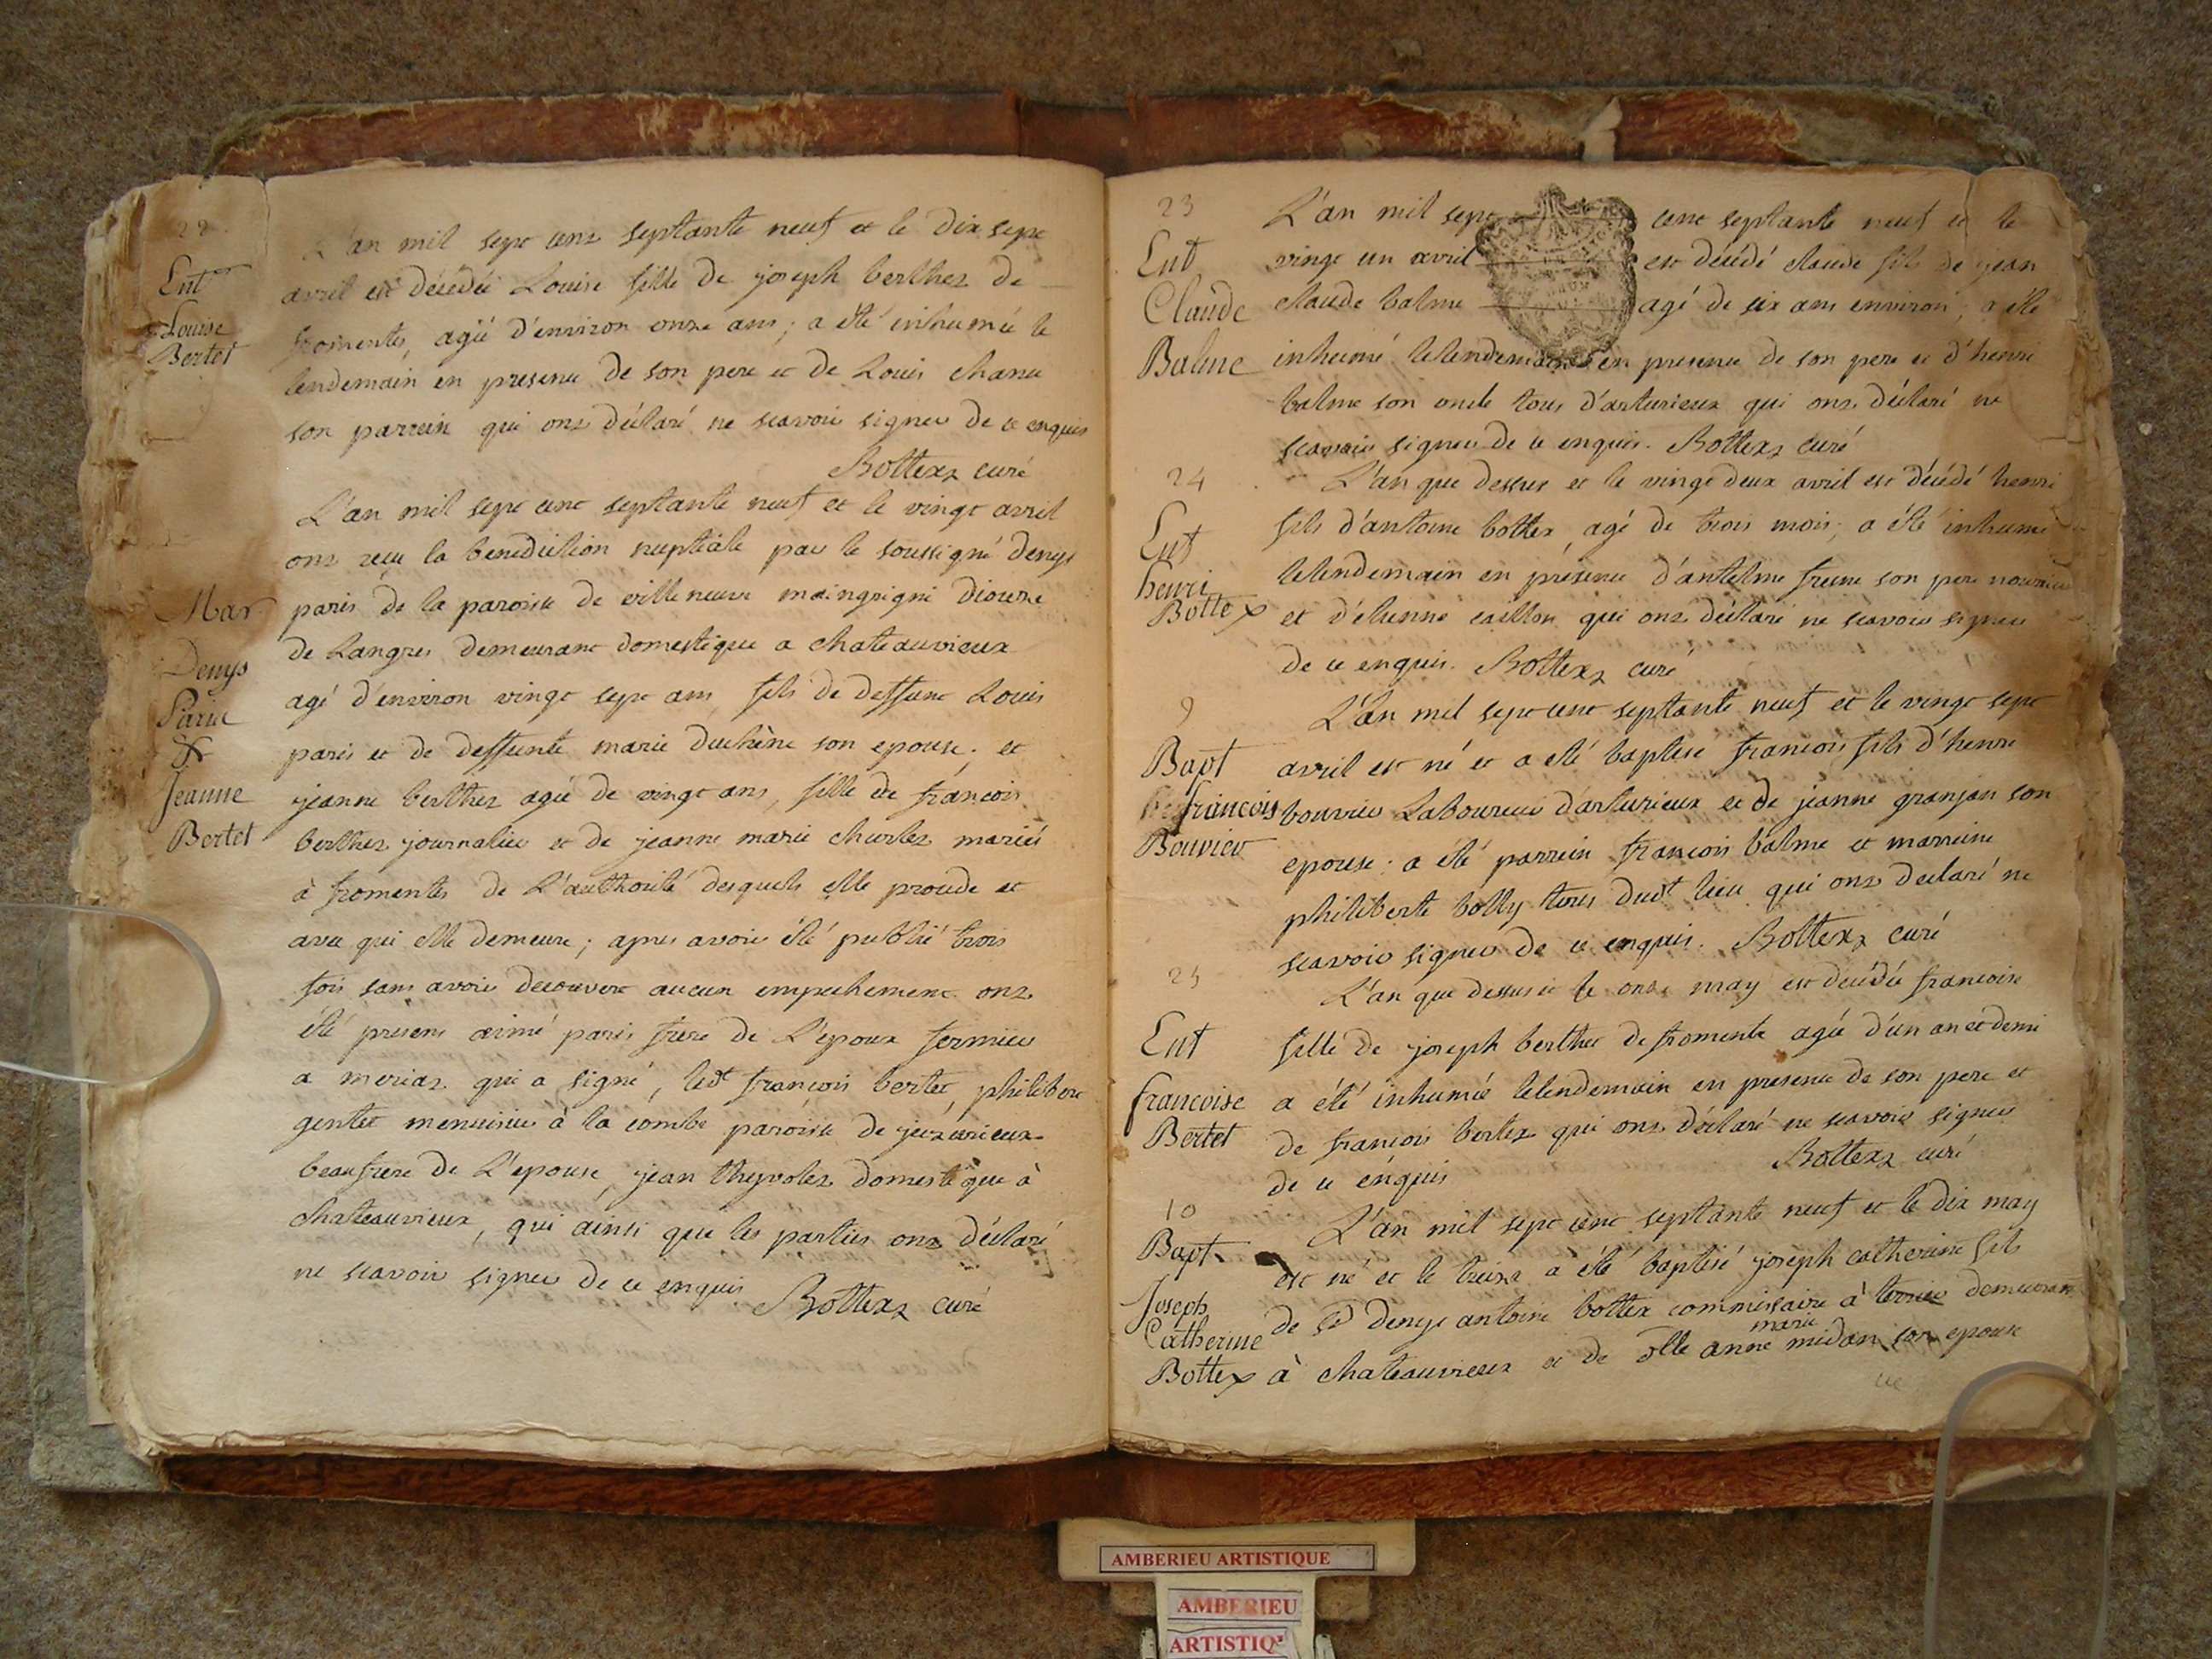 22
Ent
Louise
Bertet
L'an mil sept cens septante neuf et le dix sept
avril est décédée Louise fille de joseph berthet de
fromentes, agée d'environ onze ans; a été inhumée le
lendemain en presence de son pere et de Louis chanu
son parrein qui ons déclaré ne scavoir signer de ce enquis
Bottex curé
Mar
Denys
Paris
&
Jeanne
Bertet
L'an mil sept cent septante neuf et le vingt avril
ons reçu la benediction nuptiale par le soussigné denys
paris de la paroisse de villeneuve diocese
de Langres demeurant domestique a chateauvieux
agé d'environ vingt sept ans fils de deffunt Louis
paris et de deffunte marie duchêne son epouse; et
jeanne berthet agée de vingt ans, fille de françois
berthet journalier et de jeanne marie charlet mariés
à fromentes de L'authorité desquels elle procede et
avec qui elle demeure; apres avoir été publié trois
fois sans avoir decouvert aucun empechement ons
été presens aimé paris frere de L'epoux fermier
a meriaz qui a signé, ledt françois bertet, philibert
gentet menuisier à la combe paroisse de jujurieux
beaufrere de L'epouse, jean theyvolet domestique à
chateauvieux, qui ainsi que les parties ons déclaré
ne scavoir signer de ce enquis Bottex curé
23
Ent
Claude
Balme
L'an mil sept cent septante neuf et le
vingt un avril est décédé claude fils de jean
claude balme agé de six ans environ, a été
inhumé lelendemain en presence de son pere et d'henri
balme son oncle tous d'arturieux qui ons déclaré ne
scavoir signer de ce enquis. Bottex curé
24
Ent
henri
Bottex
L'an que dessus et le vingt deux avril est décédé henri
fils d'antoine bottex, agé de trois mois; a été inhumé
lelendemain en présence d'antelme frene son pere nourricier
et d'etienne caillon qui ons déclaré ne scavoir signer
de ce enquis. Bottex curé
9
Bapt
françois
Bouvier
L'an mil sept cent septante neuf et le vingt sept
avril est né et a eté baptisé françois fils d'henri
bouvier Laboureur d'arturieux et de jeanne granjan son
epouse: a été parrein françois balme et marreine
philiberte bolly tous dudt lieu qui ons declaré ne
scavoir signer de ce enquis. Bottex curé
25
Ent
francoise
Bertet
L'an que dessus et le onze may est décédée francoise
fille de joseph berthet de fromente agée d'un an et demi
a été inhumée lelendemain en presence de son pere et
de françois bertet qui ons déclaré ne scavoir signer
de ce enquis Bottex curé
10
Bapt
Joseph
Catherine
Bottex
L'an mil sept cent septante neuf et le dix may
est né et le treize a été baptisé joseph catherine fils
de sr denys antoine bottex commissaire à terrier demeurant
marie
à chateauvieux et de dlle anne midan son epouse
AMBERIEU ARTISTIQUE
AMBERIEU
ARTISTIQ